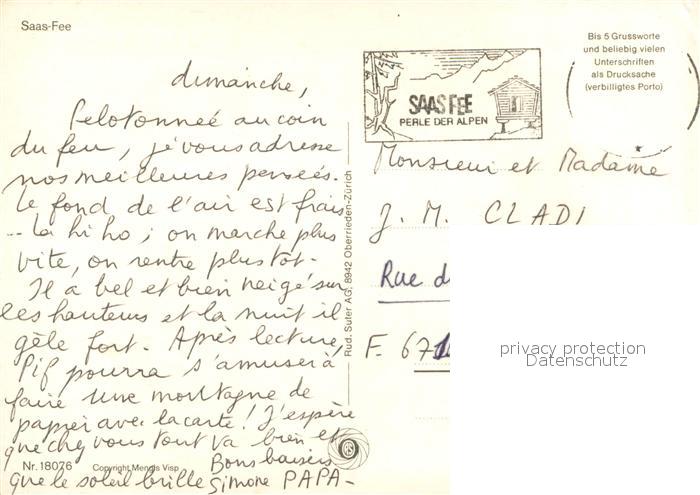 Saas-Fee
Bis 5 Grussworte
und beliebig vielen
Unterschriften
als Drucksache
(verbilligtes Porto)
SAAS FEE
PERLE DER ALPEN
dimanche,
Pelotonneé au coin
du feu, je vous adresse
nos meilleures pensées.
Le fond de l'air est frais
-- la hi ho ; on marche plus
vite, on rentre plus tôt.
Il a bel et bien neigé sur
les hauteurs et la nuit il
gèle fort. Après lecture,
Pif pourra s'amuser à
faire une montagne de
papier avec la carte ! J'espère
que chez vous tout va bien et
que le soleil brille
Bons baisers
Simone PAPA-
Nr. 18076 Copyright Mengis Visp
Rud. Suter AG, 8942 Oberrieden-Zürich
Monsieur et Madame
J. M. CLADI
Rue d
F. 67
privacy protection
Datenschutz